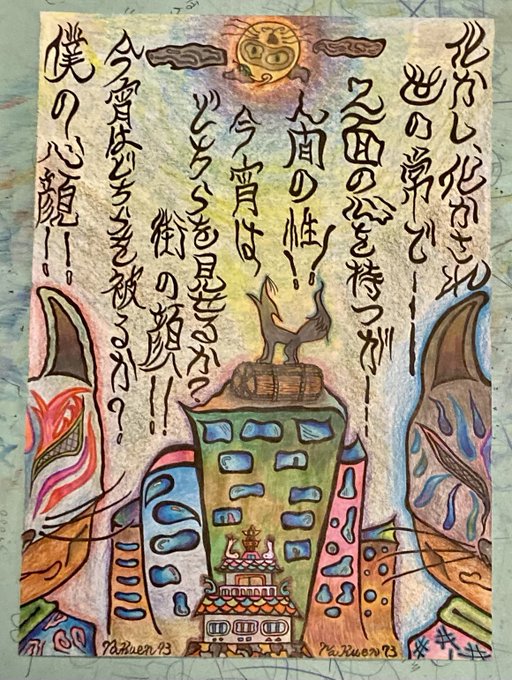 化かし、化かされ
世の常でーー
二面の心を持つがーー
人間の性!!
今宵は
どちらを見せるか?
街の顔!!
今宵はどちらを被るか?
僕の心顔!!
NaRuen 93
NaRuen 93